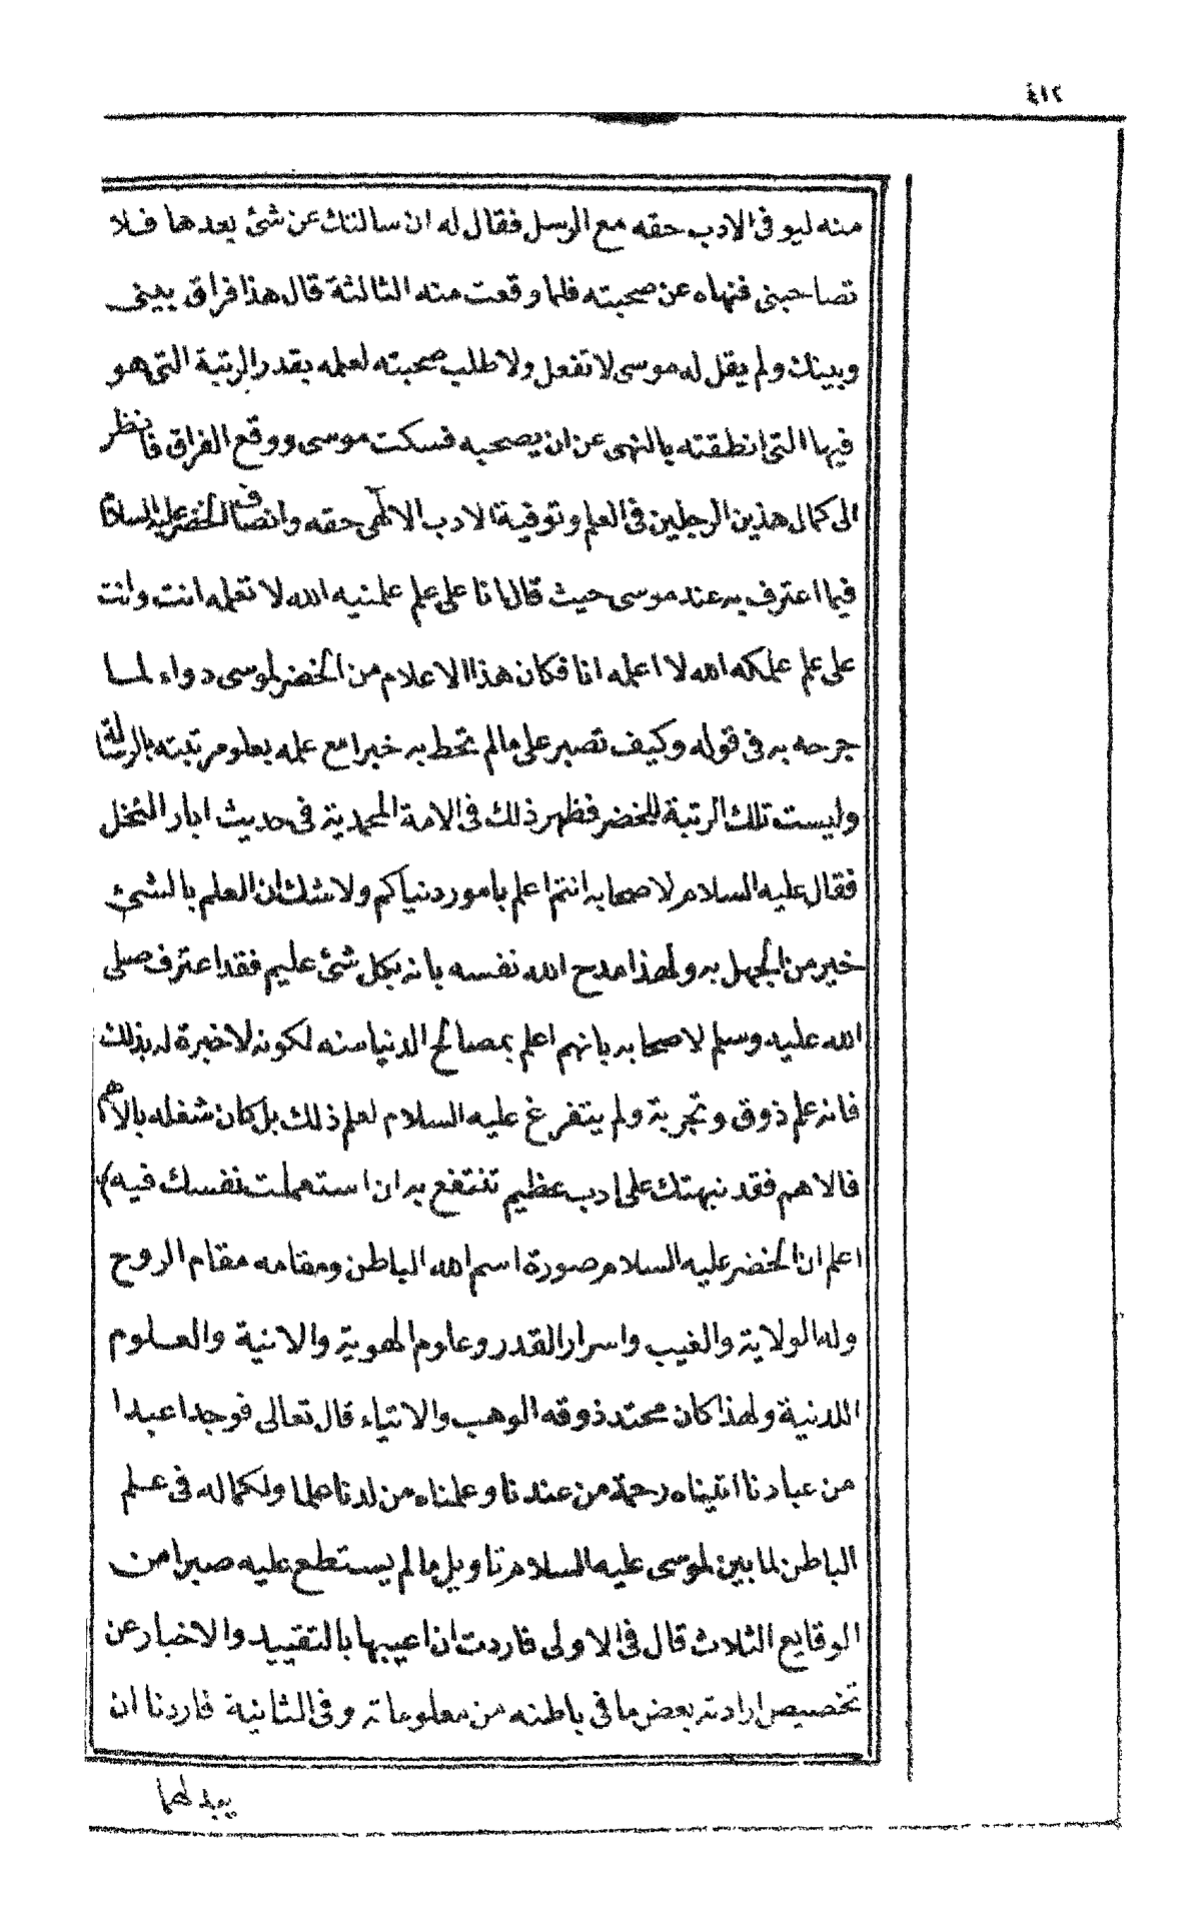 ٤١٢
منه ليوفى الادب حقه مع الرسل فقال له ان سالتك عن شئ بعدها فلا
تصاحبنى فنهاه عن صحبته فلما وقعت منه الثالثة قال هذا فراق بينى
وبينك ولم يقل له موسى لا تفعل ولا طلب صحبته لعلمه بقدر الرتبة التى هو
فيها التى انطقته بالنهى عن ان يصحبه فسكت موسى ووقع الفراق فانظر
الى كمال هذين الرجلين فى العلم وتوفية الادب الالهى حقه وانصاف الخضر عليه السلام
فيما اعترف به عند موسى حيث قال انا على علم علمنيه الله لا تعلمه انت وانت
على علم علمكه الله لا اعلمه انا فكان هذا الاعلام من الخضر لموسى دواء لما
جرحه به فى قوله وكيف تصبر على ما لم تحط به خبرا مع علمه بعلو مرتبته بالرسالة
وليست تلك الرتبة للخضر فظهر ذلك فى الامة المحمدية فى حديث ابار النخل
فقال عليه السلام لاصحابه انتم اعلم بامور دنياكم ولا شك ان العلم بالشئ
خير من الجهل به ولهذا مدح الله نفسه بانه بكل شئ عليم فقد اعترف صلى
الله عليه وسلم لاصحابه بانهم اعلم بمصالح الدنيا منه لكونه لا خبرة له بذلك
فانه علم ذوق وتجربة ولم يتفرغ عليه السلام لعلم ذلك بل كان شغله بالاهم
فالاهم فقد نبهتك على ادب عظيم تنتفع به ان استعملت نفسك فيه)
اعلم ان الخضر عليه السلام صورة اسم الله الباطن ومقامه مقام الروح
وله الولاية والغيب واسرار القدر وعلوم الهوية والانية والعلوم
اللدنية ولهذا كان محتد ذوقه الوهب والايتاء قال تعالى فوجدا عبدا
من عبادنا اتيناه رحمة من عندنا وعلمناه من لدنا علما ولكماله فى علم
الباطن لما بين لموسى عليه السلام تاويل ما لم يستطع عليه صبرا من
الوقايع الثلاث قال فى الاولى فاردت ان اعيبها بالتقييد والاخبار عن
تخصيص ارادته بعض ما فى باطنه من معلوماته وفى الثانية فاردنا ان
يبدلهما